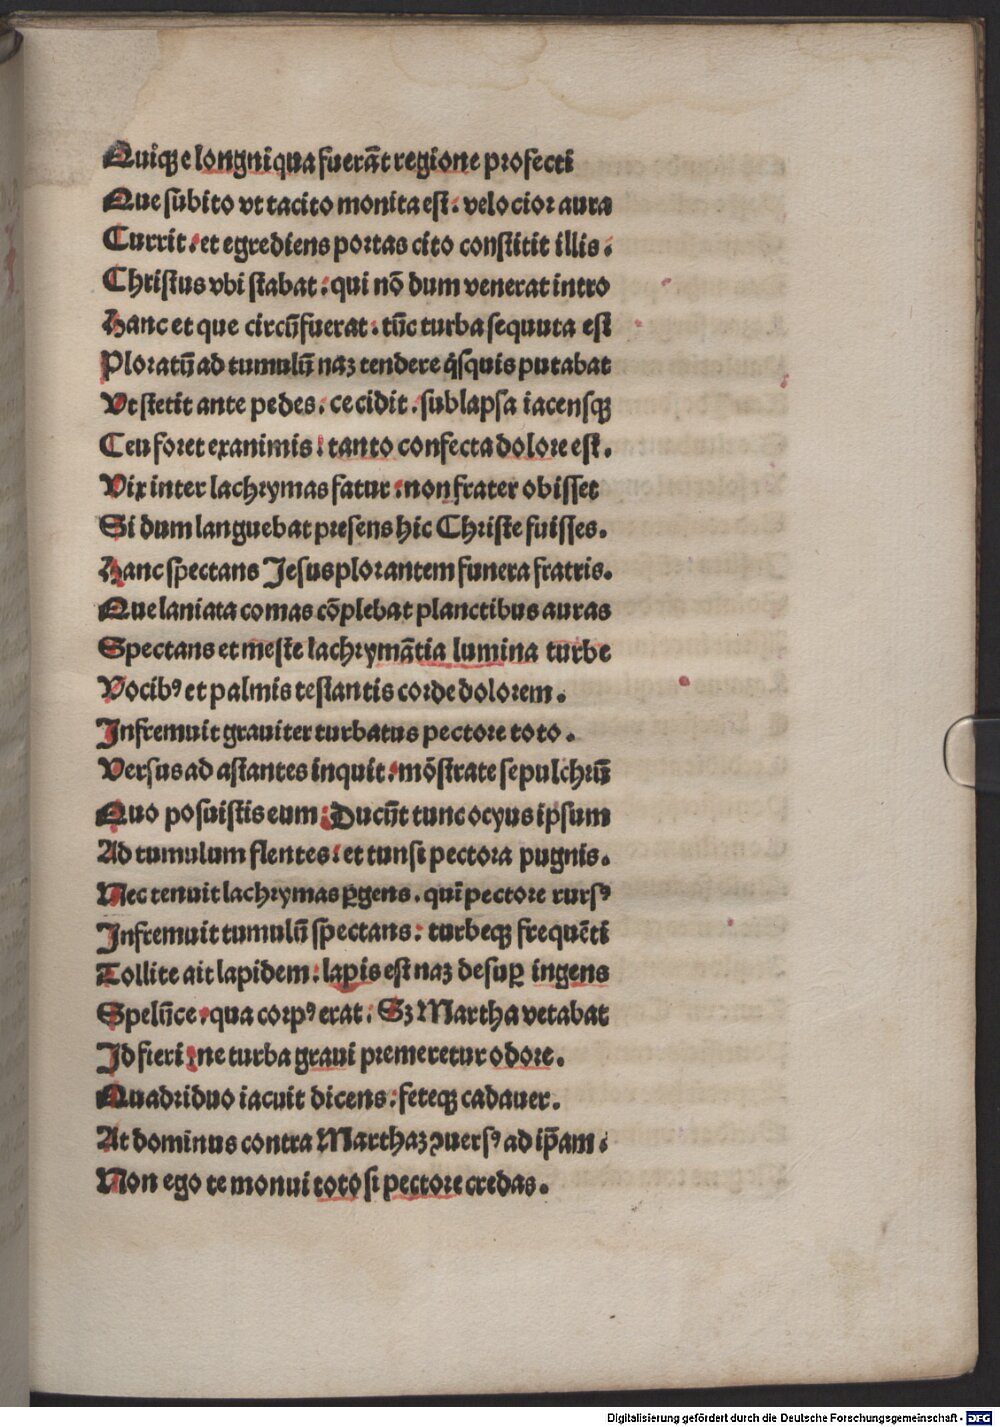 Quiqꝫ e longniqua fuerāt regione profecti
Que subito vt tacito monita est. velocior aura
Currit. et egrediens portas cito constitit illis.
Christus vbi stabat: qui nō dum venerat intro
Hanc et que circūfuerat. tūc turba sequuta est
Ploratū ad tumulū naꝫ tendere q̄squis putabat
Vt stetit ante pedes. cecidit. sublapsa iacensqꝫ
Ceu foret exanimis: tanto confecta dolore est.
Vix inter lachrymas fatur: non frater obisset
Si dum languebat presens hic Christe fuisses.
Hanc spectans Jesus plorantem funera fratris.
Que laniata comas cōplebat planctibus auras
Spectans et meste lachrymātia lumina turbe
Vocibꝰ et palmis testantis corde dolorem.
Infremuit grauiter turbatus pectore toto.
Versus ad astantes inquit: mōstrate sepulchrū
Quo posuistis eum: Ducūt tunc ocyus ipsum
Ad tumulum flentes: et tunsi pectora pugnis.
Nec tenuit lachrymas ꝑgens. quī pectore rursꝰ
Infremuit tumulū spectans: turbeqꝫ frequēti
Tollite ait lapidem: lapis est naꝫ desuꝑ ingens
Spelūce. qua corpꝰ erat. Sꝫ Martha vetabat
Id fieri: ne turba graui premeretur odore.
Quadriduo iacuit dicens: feteqꝫ cadauer.
At dominus contra Marthaꝫ ꝯuersꝰ ad ip̄am.
Non ego te monui toto si pectore credas.
Digitalisierung gefördert durch die Deutsche Forschungsgemeinschaft - DFG